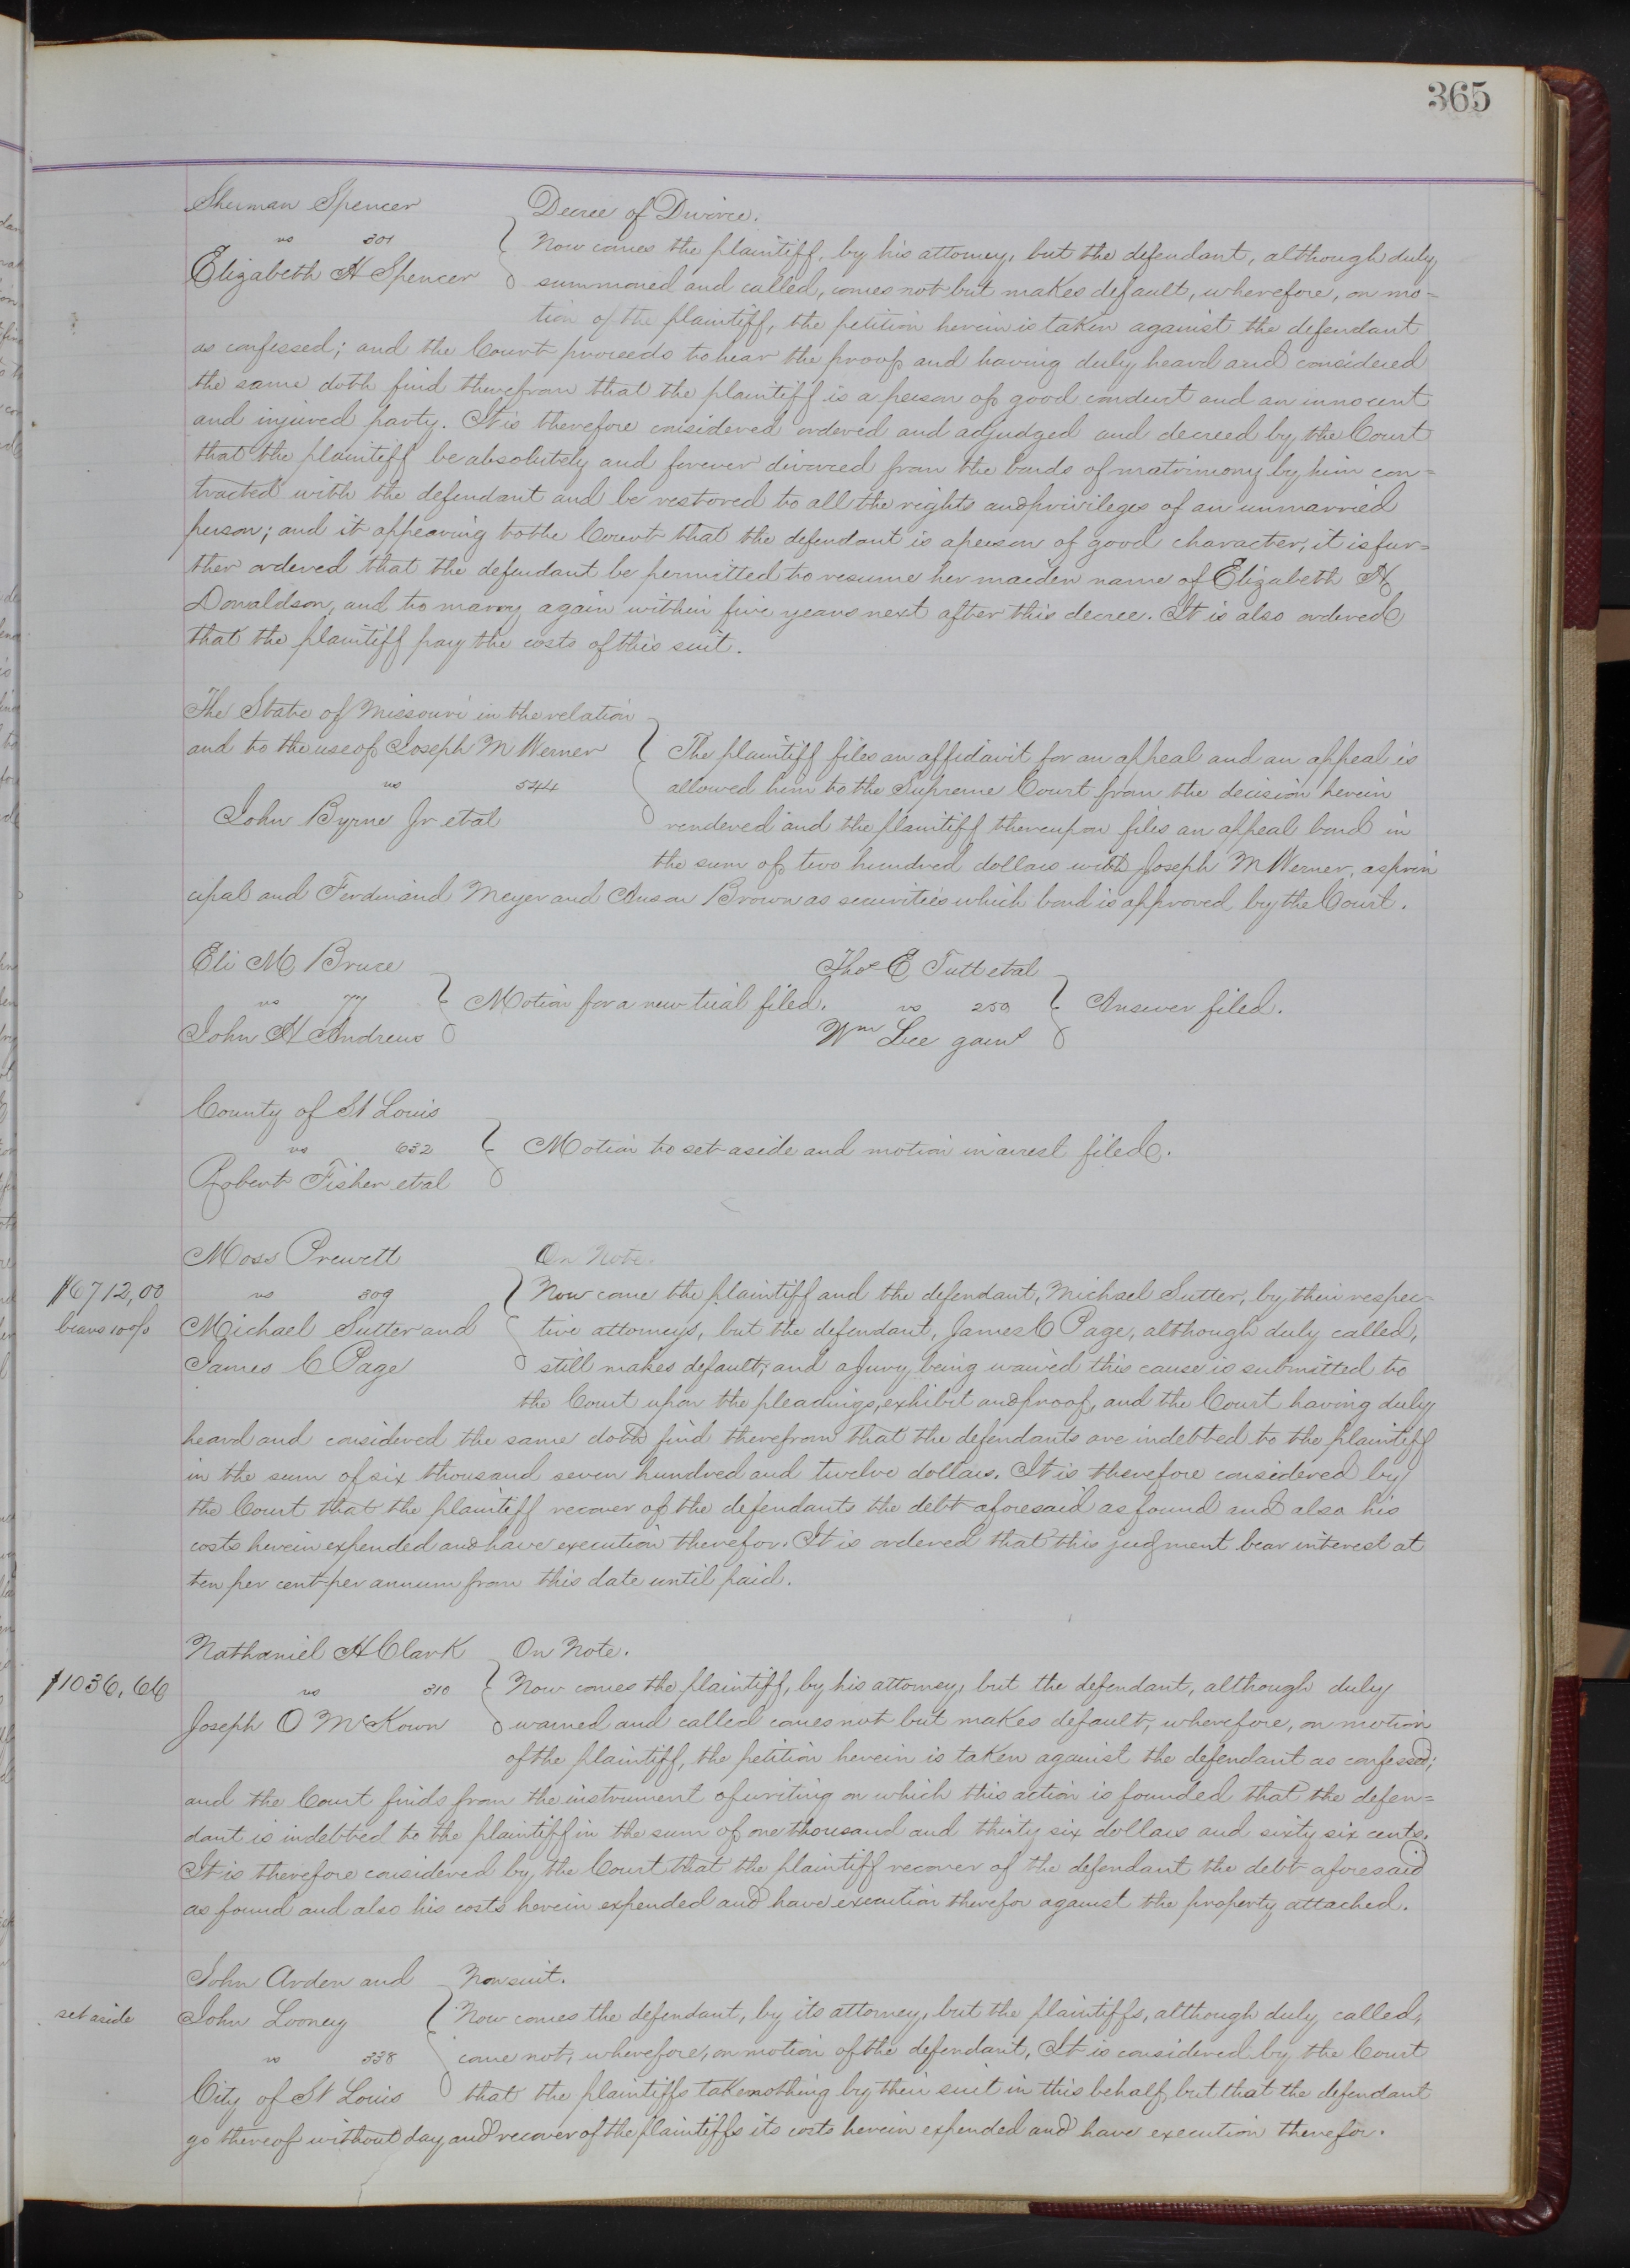 365
Sherman Spencer
vs 301
Elizabeth H Spencer
Decree of Divorce.
Now comes the plaintiff, by his attorney, but the defendant, although duly
summoned and called, comes not but makes default, wherefore, on mo=
tion of the plaintiff, the petition herein is taken against the defendant
as confessed; and the Court proceeds to hear the proof and having duly heard and considered
the same doth find therefrom that the plaintiff is a person of good conduct and an innocent
and injured party. It is therefore considered ordered and adjudged and decreed by the Court
that the plaintiff be absolutely and forever divorced from the bonds of matrimony by him con=
tracted with the defendant and be restored to all the rights and privileges of an unmarried
person; and it appearing to the Court that the defendant is a person of good character, it is fur=
ther ordered that the defendant be permitted to resume her maiden name of Elizabeth H
Donaldson, and to marry again within five years next after this decree. It is also ordered
that the plaintiff pay the costs of this suit.
The State of Missouri in the relation
and to the use of Joseph M Werner
vs 544
John Byrne Jr et al
The plaintiff files an affidavit for an appeal and an appeal is
allowed him to the Supreme Court from the decision herein
rendered and the plaintiff thereupon files an appeal bond in
the sum of two hundred dollars with Joseph M Werner, as prin
cipal and Ferdinand Meyer and Anson Brown as securities which bond is approved by the Court.
Eli M Bruce
vs 77
John H Andrews
Motion for a new trial filed.
Thos E Tutt et al
vs 250
Wm Lee garns
Answer filed.
County of St Louis
vs 632
Robert Fisher et al
Motion to set aside and motion in arrest filed.
Moss Prewett
$6712,00
vs 309
bears 10 o/o
Michael Sutter and
James C Page
On Note.
Now come the plaintiff and the defendant, Michael Sutter, by their respec-
tive attorneys, but the defendant, James C Page, although duly called,
still makes default; and a Jury being waived this cause is submitted to
the Court upon the pleadings, exhibit and proof, and the Court having duly
heard and considered the same doth find therefrom that the defendants are indebted to the plaintiff
in the sum of six thousand seven hundred and twelve dollars. It is therefore considered by
the Court that the plaintiff recover of the defendants the debt aforesaid as found and also his
costs herein expended and have execution therefor. It is ordered that this judgment bear interest at
ten per cent per annum from this date until paid.
Nathaniel H Clark
$1036,66
vs 310
Joseph O McKown
On Note.
Now comes the plaintiff, by his attorney, but the defendant, although duly
warned and called comes not but makes default; wherefore, on motion
of the plaintiff, the petition herein is taken against the defendant as confessed;
and the Court finds from the instrument of writing on which this action is founded that the defen=
dant is indebted to the plaintiff in the sum of one thousand and thirty six dollars and sixty six cents.
It is therefore considered by the Court that the plaintiff recover of the defendant the debt aforesaid
as found and also his costs herein expended and have execution therefor against the property attached.
John Arden and
set aside
John Looney
vs 338
City of St Louis
Nonsuit.
Now comes the defendant, by its attorney, but the plaintiffs, although duly called,
come not; wherefore, on motion of the defendant, It is considered by the Court
that the plaintiffs take nothing by their suit in this behalf, but that the defendant
go thereof without day and recover of the plaintiffs its costs herein expended and have execution therefor.